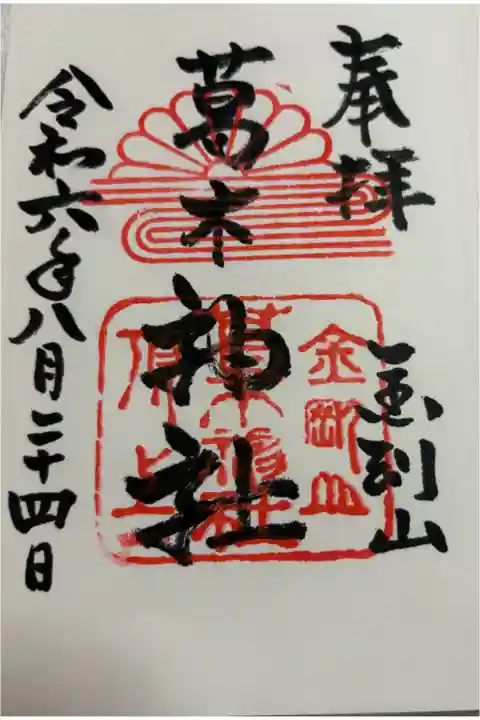 奉拝
金剛山
葛木神社
金剛山
葛木神社
頂上
令和六年八月二十四日